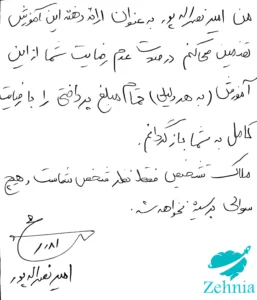 من امیر نصرالله پور به عنوان ارائه دهنده این آموزش
تضمین می‌کنم در صورت عدم رضایت شما از این
آموزش (به هر دلیلی) تمام مبلغ پرداختی را با رضایت
کامل به شما بازگردانم.
ملاک تشخیص فقط نظر شخص شماست و هیچ
سوالی پرسیده نخواهد شد.
امیر نصرالله پور
Zehnia